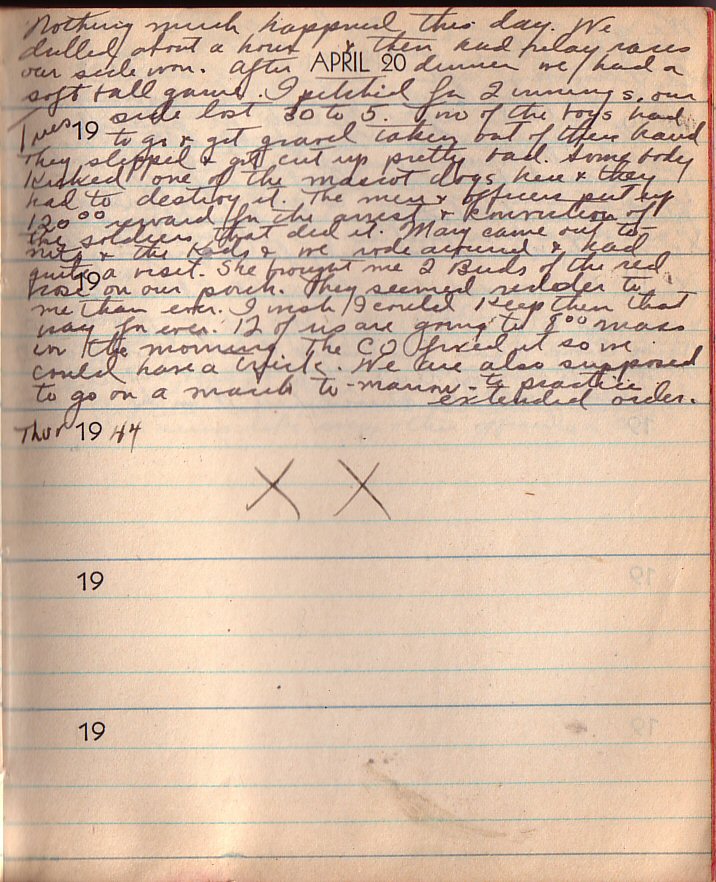 Nothing much happened this day. We
drilled about a hour & then had relay races
our side won. After dinner we had a
APRIL 20
soft ball game. I pitched for 2 innings, our
Tues 19 side lost 30 to 5. Two of the boys had
to go & get gravel taken out of there hand
They slipped & got cut up pretty bad. Somebody
Kicked one of the mascot dogs here & they
had to destroy it. The men & officers put up
120⁰⁰ reward for the arrest & Konviction of
the soldiers that did it. Mary came out to-
nite & the Kids & we rode around & had
quite a visit. She brought me 2 Buds of the red
19
rose on our porch. They seemed redder to
me than ever. I wish I could Keep them that
way for ever. 12 of us are going to 8⁰⁰ mass
in the morning The CO fixed it so we
could have a truck. We are also supposed
to go on a march to-morrow - to practice
extended order.
Thur 19 44
X X
19
19